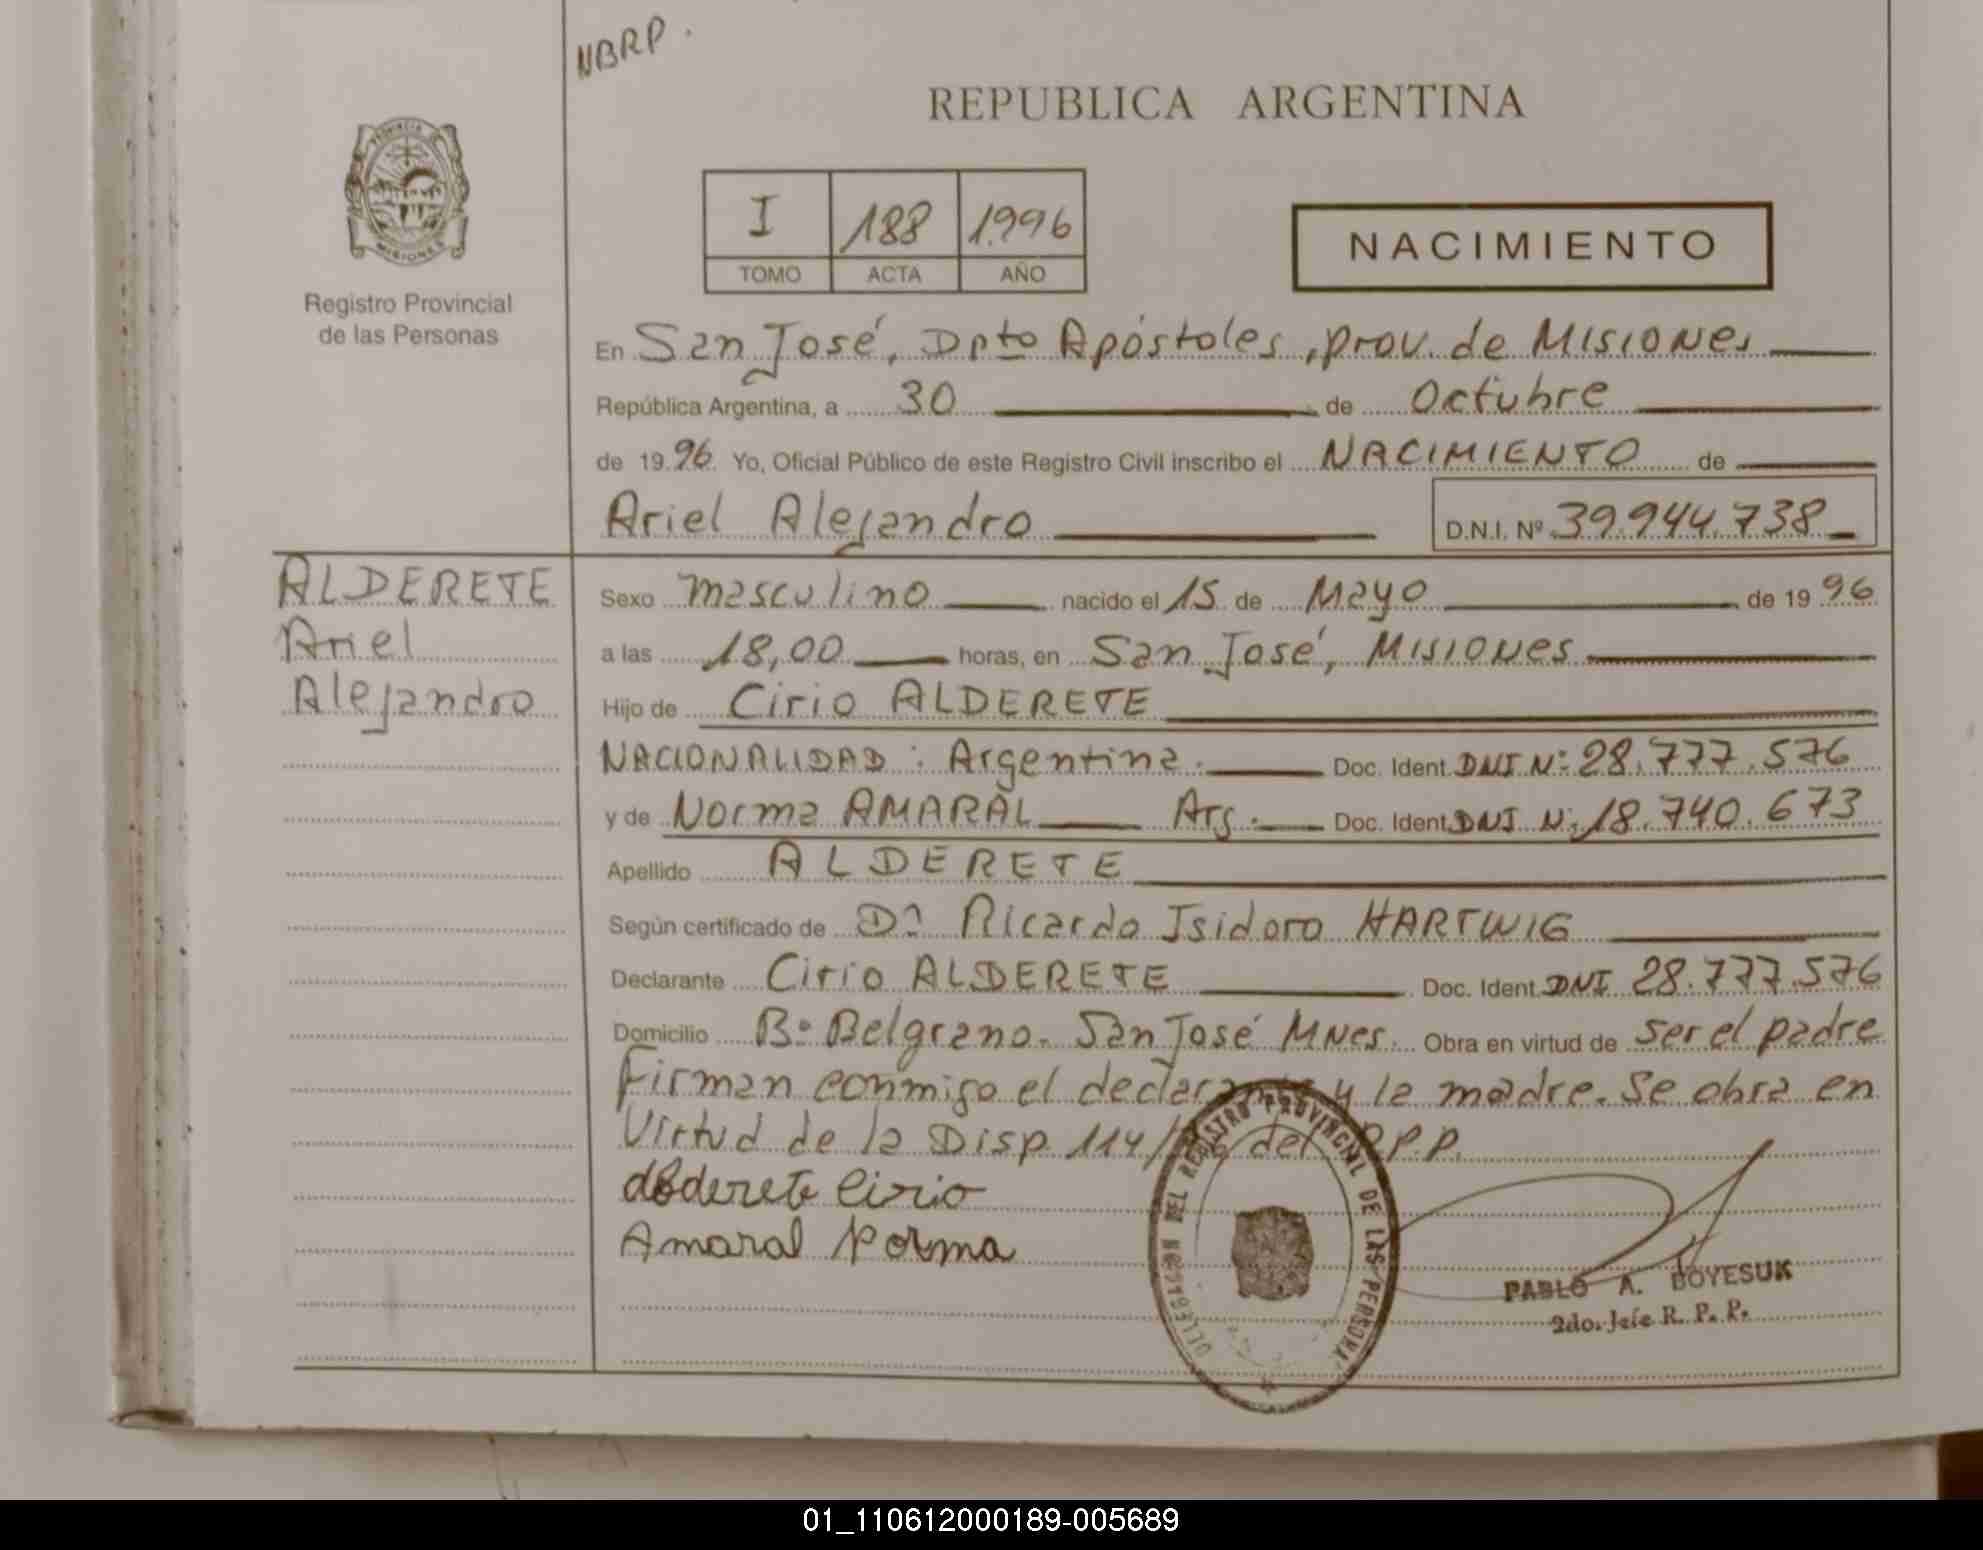 NBRP.
REPUBLICA ARGENTINA
PROVINCIA DE
MISIONES
Registro Provincial
de las Personas
I 188 1996
TOMO ACTA AÑO
NACIMIENTO
En San José, Dpto Apóstoles, prov. de Misiones
República Argentina, a 30 de Octubre
de 1996. Yo, Oficial Público de este Registro Civil inscribo el NACIMIENTO de
Ariel Alejandro D.N.I. Nº 39.944.738
ALDERETE
Ariel
Alejandro
Sexo masculino nacido el 15 de Mayo de 1996
a las 18,00 horas, en San José, Misiones
Hijo de Cirio ALDERETE
NACIONALIDAD: Argentina. Doc. Ident. DNI Nº 28.777.576
y de Norma AMARAL Arg. Doc. Ident. DNI Nº 18.740.673
Apellido ALDERETE
Según certificado de Dr. Ricardo Isidoro HARTWIG
Declarante Cirio ALDERETE Doc. Ident. DNI 28.777.576
Domicilio Bº Belgrano. San José Mnes. Obra en virtud de ser el padre
Firman conmigo el declarante y la madre. Se obra en
Virtud de la Disp. 114/ del R.P.P.
alderete Cirio
Amaral Norma
DELEGACION DEL REGISTRO PROVINCIAL DE LAS PERSONAS
PABLO A. BOYESUK
2do. Jefe R. P. P.
01_110612000189-005689